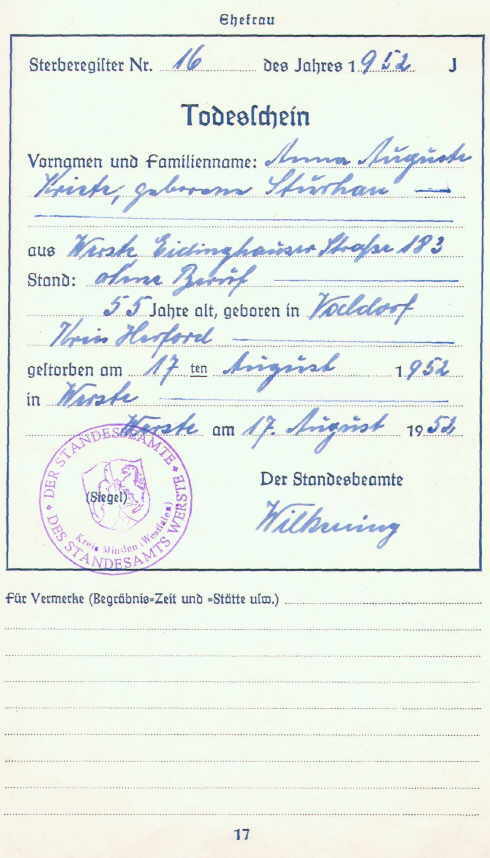 Ehefrau
Sterberegister Nr. 16 des Jahres 1952 J
Todesschein
Vornamen und Familienname: Anna Auguste
Kriete, geborene Sturhan
aus Werste Eidinghauser Straße 183
Stand: ohne Beruf
55 Jahre alt, geboren in Valdorf
Kreis Herford
gestorben am 17 ten August 1952
in Werste
Werste am 17. August 1952
DER STANDESBEAMTE
DES STANDESAMTS WERSTE
Kreis Minden (Westfalen)
(Siegel)
Der Standesbeamte
Wilkening
Für Vermerke (Begräbnis=Zeit und =Stätte usw.)
17